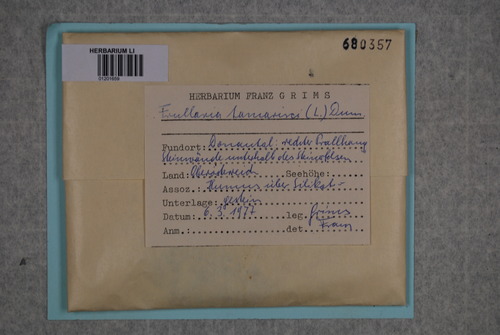 680357
HERBARIUM LI
HERBARIUM FRANZ GRIMS
Frullania tamarisci (L.) Dum
Fundort: Donautal: rechter Prallhang
Steinwände unterhalb des
Land: Oberösterreich Seehöhe:
Assoz. Humus über Silikat-
Unterlage: gestein
Datum: 6.3.1977 leg. Grims
Anm.: det. Franz